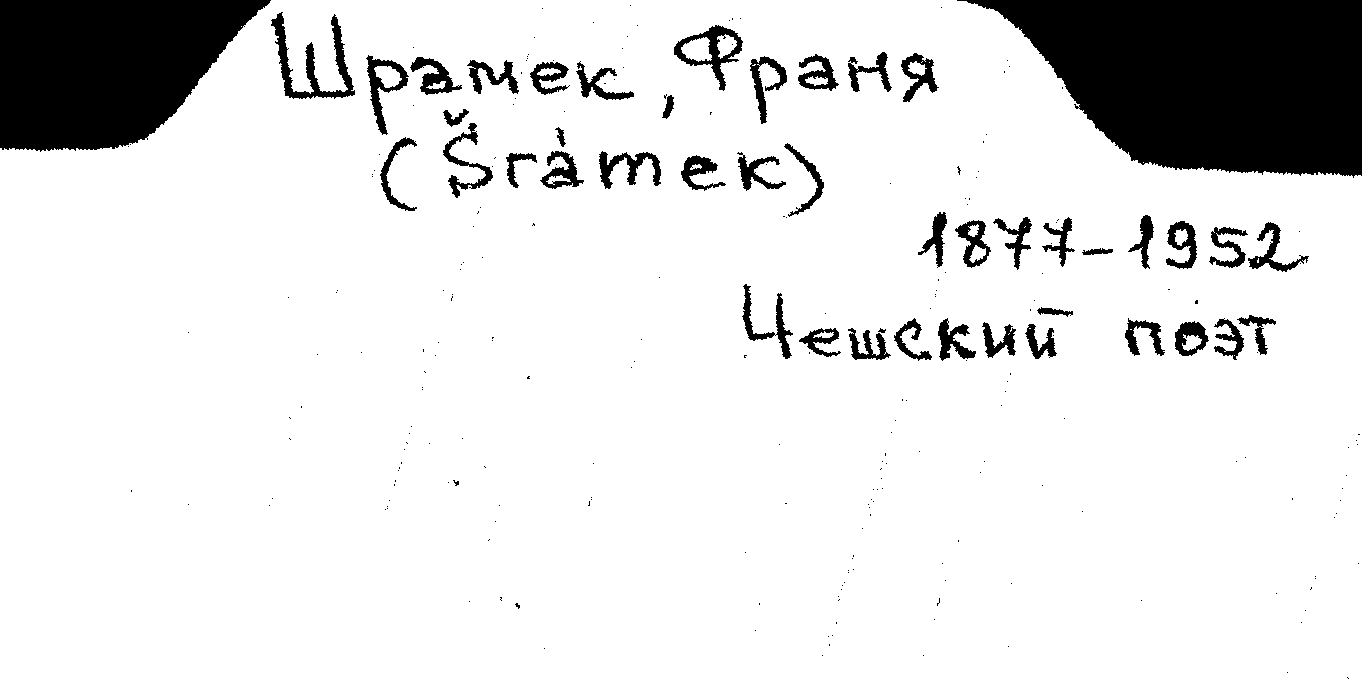 Шрамек, Франя
(Šrámek)
1877-1952
Чешский поэт